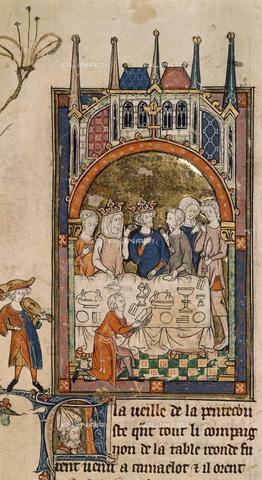 ALINARI
A la ueille de la pentecou
ste qnt tout li compaig
non de la table reonde fu
rent uenu a camaelot & il orent